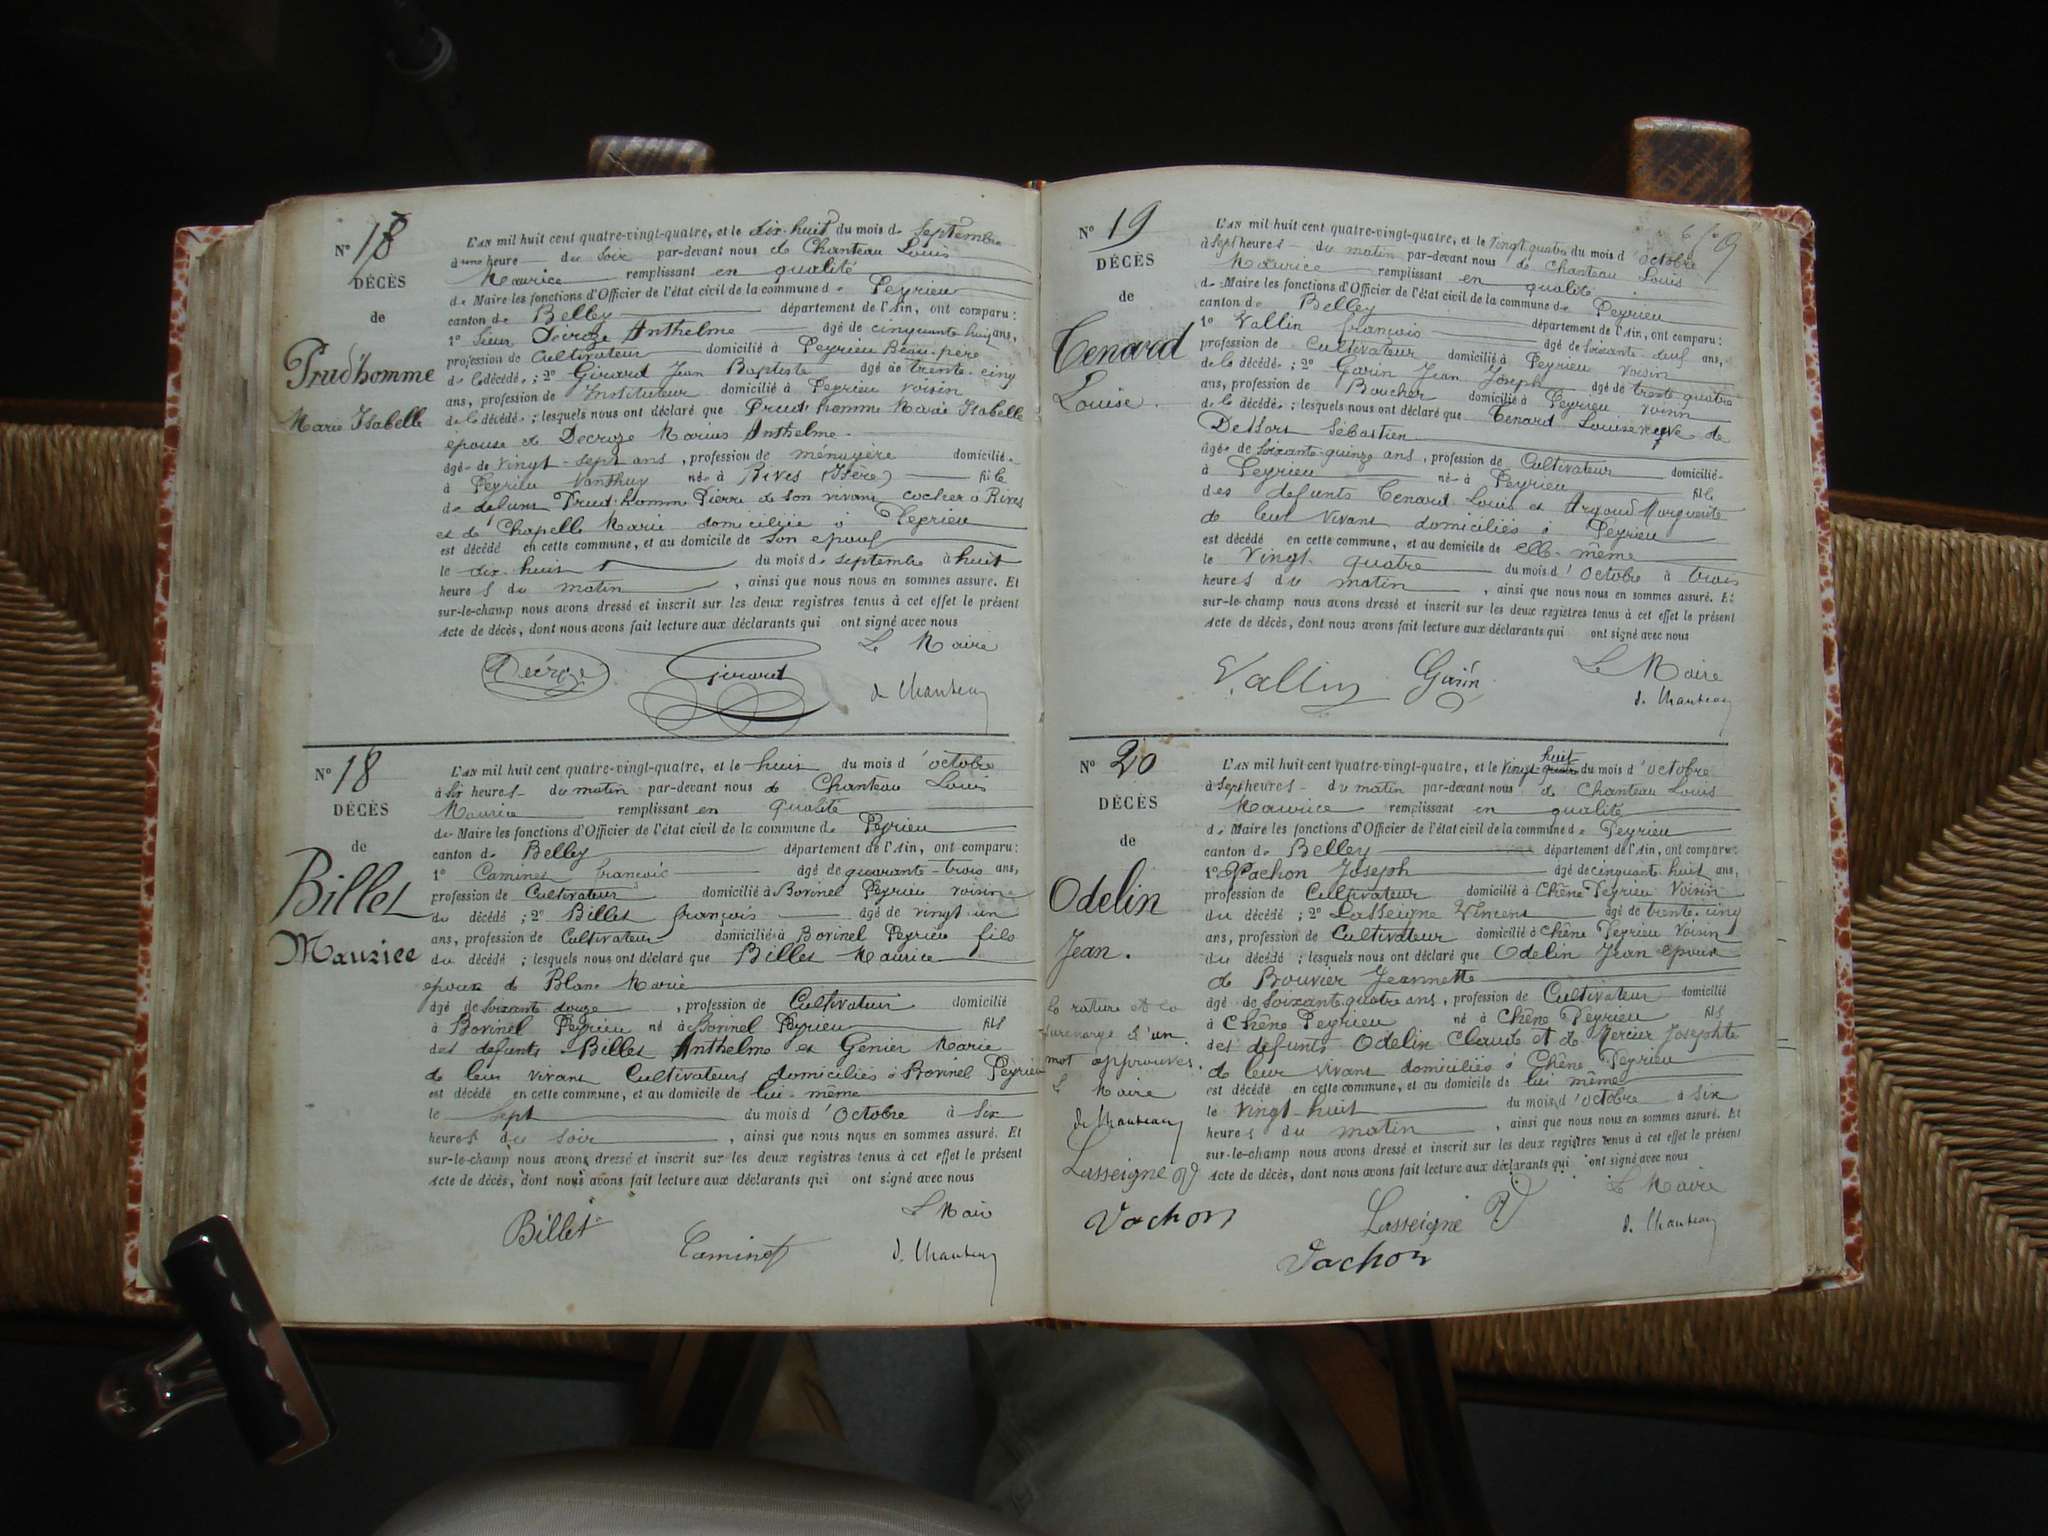 N° 18
DÉCÈS
de
Prud'homme
Marie Isabelle
L'AN mil huit cent quatre-vingt-quatre, et le dix-huit du mois de Septembre
à une heure du soir par-devant nous de Chanteau Louis
Maurice remplissant en qualité
de Maire les fonctions d'Officier de l'état civil de la commune de Peyrieu
canton de Belley département de l'Ain, ont comparu :
1° Sieur Décroze Anthelme âgé de cinquante huit ans,
profession de Cultivateur domicilié à Peyrieu Beau-père
de la décédée ; 2° Girard Jean Baptiste âgé de trente-cinq
ans, profession de Instituteur domicilié à Peyrieu voisin
de la décédée ; lesquels nous ont déclaré que Prud'homme Marie Isabelle
épouse de Decroze Marius Anthelme
âgée de vingt-sept ans, profession de ménagère domiciliée
à Peyrieu née à Rives (Isère) fille
de defunt Prud'homme Pierre de son vivant cocher à Rives
et de Chapelle Marie domiciliée à Peyrieu
est décédé en cette commune, et au domicile de son epoux
le dix-huit du mois de septembre à huit
heures du matin, ainsi que nous nous en sommes assuré. Et
sur-le-champ nous avons dressé et inscrit sur les deux registres tenus à cet effet le présent
acte de décès, dont nous avons fait lecture aux déclarants qui ont signé avec nous
Le Maire
Décroze Girard de Chanteau
N° 18
DÉCÈS
de
Billet
Maurice
L'AN mil huit cent quatre-vingt-quatre, et le huit du mois d'octobre
à six heures du matin par-devant nous de Chanteau Louis
Maurice remplissant en qualité
de Maire les fonctions d'Officier de l'état civil de la commune de Peyrieu
canton de Belley département de l'Ain, ont comparu :
1° Caminet françois âgé de quarante-trois ans,
profession de Cultivateur domicilié à Bovinel Peyrieu voisin
du décédé ; 2° Billet françois âgé de vingt-un
ans, profession de Cultivateur domicilié à Bovinel Peyrieu fils
du décédé ; lesquels nous ont déclaré que Billet Maurice
epoux de Blanc Marie
âgé de soixante douze, profession de Cultivateur domicilié
à Bovinel Peyrieu né à Bovinel Peyrieu fils
des defunts Billet Anthelme et Genier Marie
de leur vivant Cultivateurs domiciliés à Bovinel Peyrieu
est décédé en cette commune, et au domicile de lui-même
le sept du mois d'Octobre à Six
heures du soir, ainsi que nous nous en sommes assuré. Et
sur-le-champ nous avons dressé et inscrit sur les deux registres tenus à cet effet le présent
acte de décès, dont nous avons fait lecture aux déclarants qui ont signé avec nous
Le Maire
Billet Caminet d. Chanteau
N° 19
DÉCÈS
de
Tenard
Louise.
L'AN mil huit cent quatre-vingt-quatre, et le vingt quatre du mois d'octobre
à sept heures du matin par-devant nous de Chanteau Louis
Maurice remplissant en qualité
de Maire les fonctions d'Officier de l'état civil de la commune de Peyrieu
canton de Belley département de l'Ain, ont comparu :
1° Vallin françois âgé de soixante-neuf ans,
profession de Cultivateur domicilié à Peyrieu voisin
de la décédée ; 2° Garin Jean Joseph âgé de trente quatre
ans, profession de Boucher domicilié à Peyrieu voisin
de la décédée ; lesquels nous ont déclaré que Tenard Louise veuve de
Dessort Sébastien
âgée de soixante-quinze ans, profession de Cultivateur domiciliée
à Peyrieu née à Peyrieu fille
des defunts Tenard Louis et Argoud Marguerite
de leur vivant domiciliés à Peyrieu
est décédé en cette commune, et au domicile de elle-même
le vingt-quatre du mois d'Octobre à trois
heures du matin, ainsi que nous nous en sommes assuré. Et
sur-le-champ nous avons dressé et inscrit sur les deux registres tenus à cet effet le présent
acte de décès, dont nous avons fait lecture aux déclarants qui ont signé avec nous
Le Maire
Vallin Garin d. Chanteau
N° 20
DÉCÈS
de
Odelin
Jean.
la rature et la
surcharge d'un
mot approuvés.
Le Maire
de Chanteau
Lasseigne
Vachon
L'AN mil huit cent quatre-vingt-quatre, et le vingt-quatre huit du mois d'octobre
à sept heures du matin par-devant nous de Chanteau Louis
Maurice remplissant en qualité
de Maire les fonctions d'Officier de l'état civil de la commune de Peyrieu
canton de Belley département de l'Ain, ont comparu :
1° Vachon Joseph âgé de cinquante huit ans,
profession de Cultivateur domicilié à Chêne Peyrieu Voisin
du décédé ; 2° Lasseigne Vincent âgé de trente-cinq
ans, profession de Cultivateur domicilié à Chêne Peyrieu Voisin
du décédé ; lesquels nous ont déclaré que Odelin Jean epoux
de Bouvier Jeannette
âgé de soixante quatre ans, profession de Cultivateur domicilié
à Chêne Peyrieu né à Chêne Peyrieu fils
des defunts Odelin Claude et de Mercier Josephte
de leur vivant domiciliés à Chêne Peyrieu
est décédé en cette commune, et au domicile de lui même
le vingt-huit du mois d'octobre à six
heures du matin, ainsi que nous nous en sommes assuré. Et
sur-le-champ nous avons dressé et inscrit sur les deux registres tenus à cet effet le présent
acte de décès, dont nous avons fait lecture aux déclarants qui ont signé avec nous
Le Maire
Lasseigne d. Chanteau
Vachon